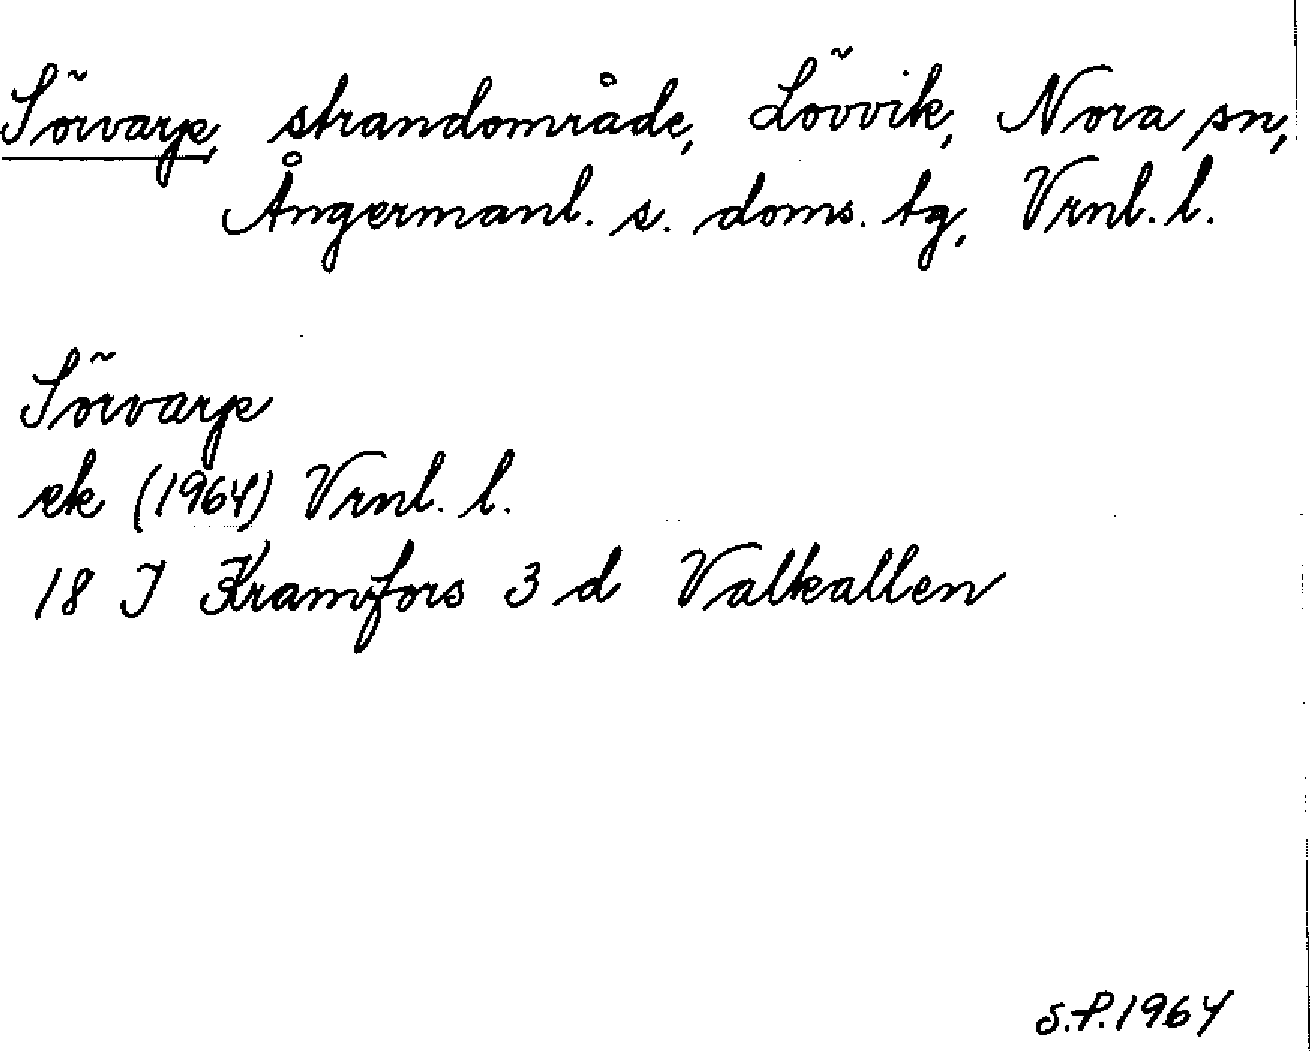 Sörvarp, strandområde, Lövvik, Nora sn,
Ångermanl. s. doms. tg, Vrnl. l.
Sörvarp
ek (1964) Vrnl. l.
18 J Kramfors 3 d Valkallen
S.P. 1964